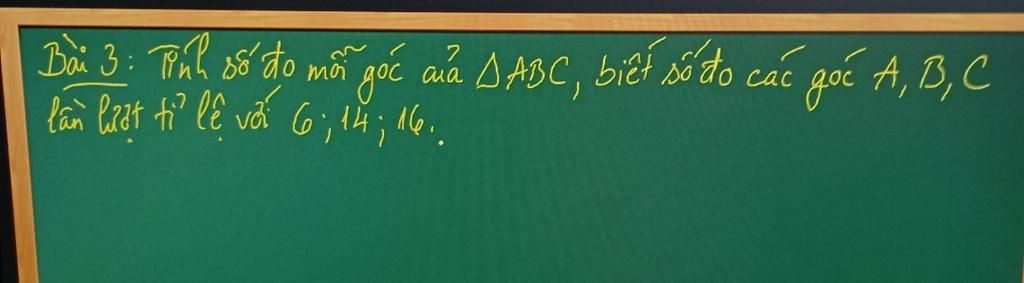 Bài 3: Tính số đo mỗi góc của △ABC, biết số đo các góc A, B, C
lần lượt tỉ lệ với 6; 14; 16.